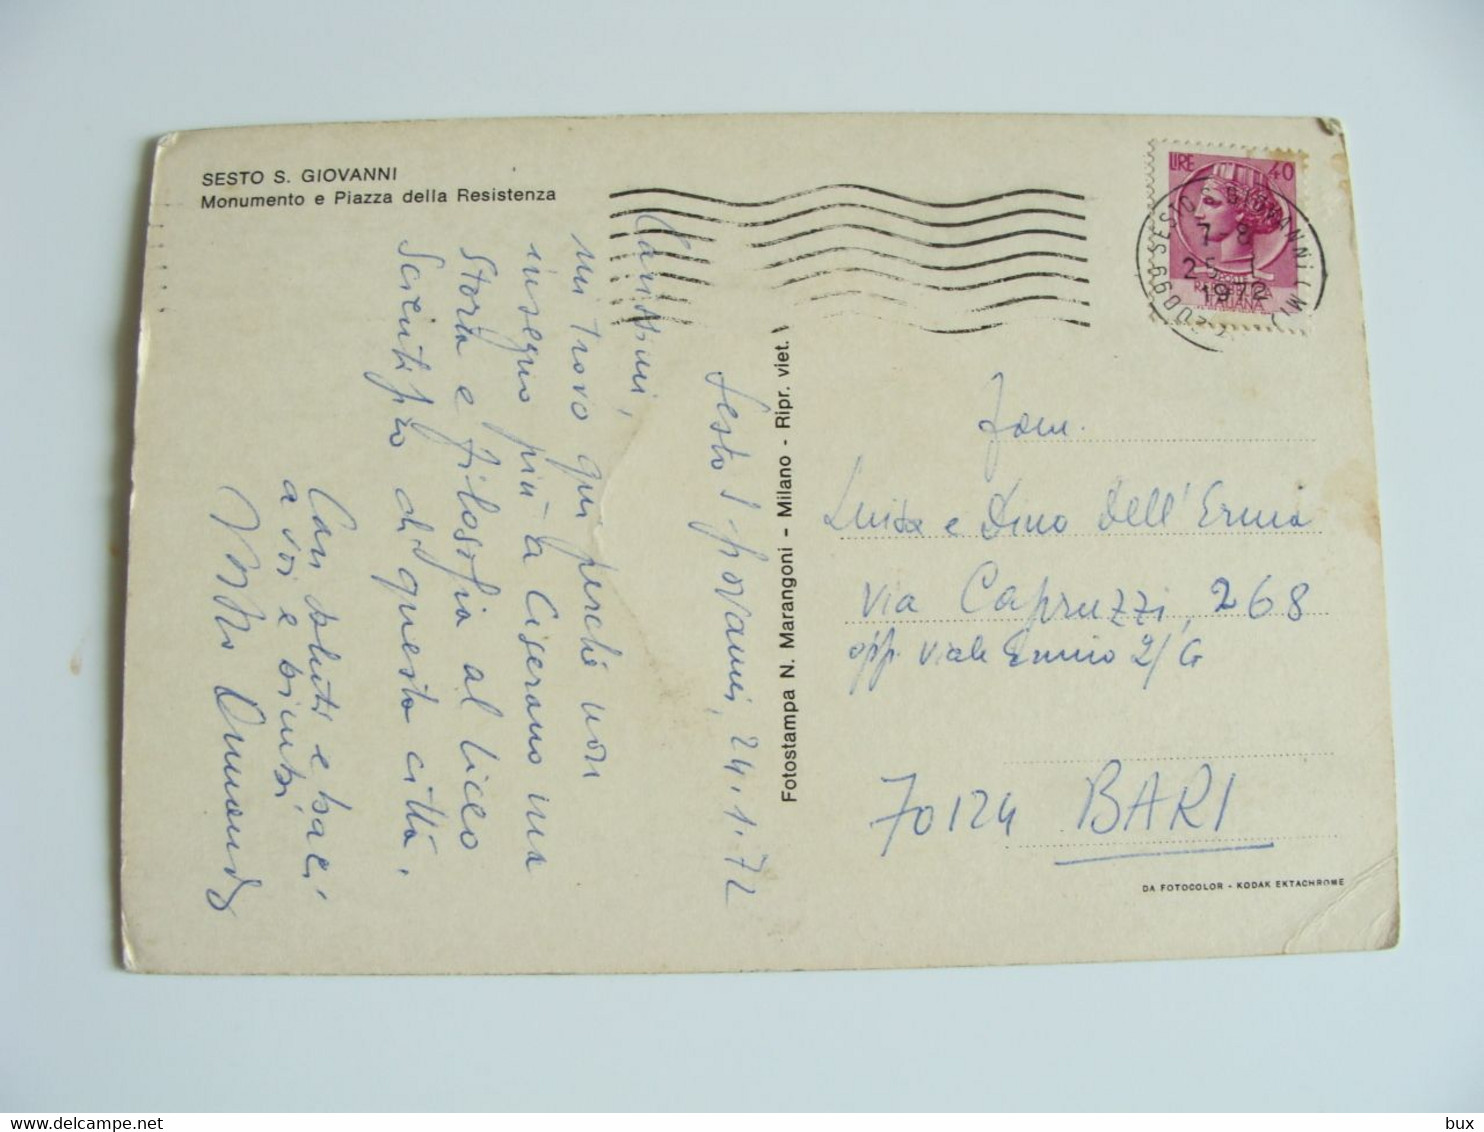 SESTO S. GIOVANNI
Monumento e Piazza della Resistenza
LIRE 40
POSTE
REPUBBLICA
ITALIANA
20099 SESTO S. GIOVANNI (MI)
7-8
25.1
1972
Sesto S. Giovanni, 24.1.72
Carissimi,
mi trovo qui perché non
insegno più a Ciserano ma
Storia e filosofia al liceo
Scientifico di questa città.
Cari saluti e baci
a voi e bimbi
Vostro
Fotostampa N. Marangoni - Milano - Ripr. viet.
Fam.
Luisa e Dino Dell'Erma
Via Capruzzi, 268
opp. Viale Ennio 2/G
70124 BARI
DA FOTOCOLOR - KODAK EKTACHROME
bux